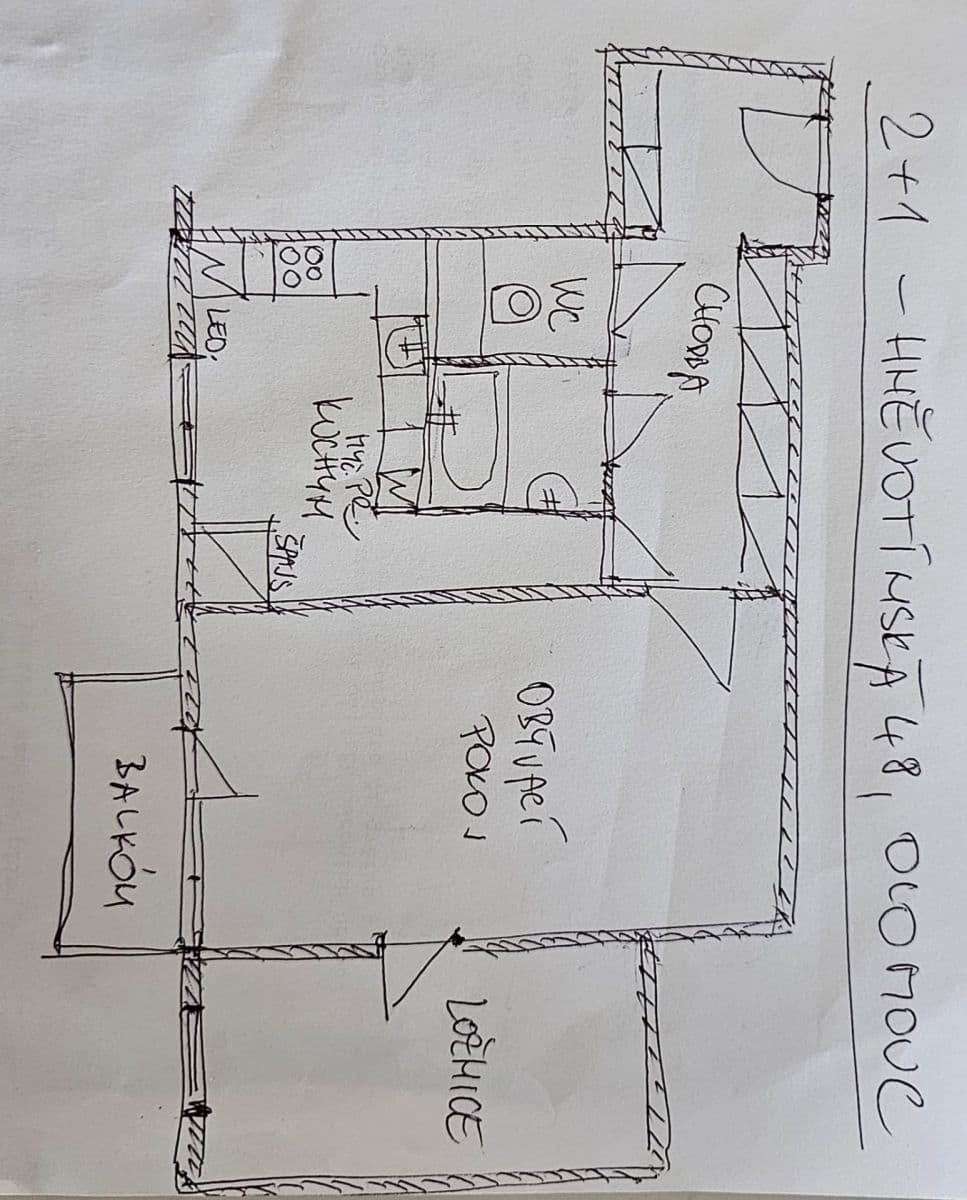 2+1 – HNĚVOTÍNSKÁ 48, OLOMOUC
CHODBA
WC
OBÝVACÍ
POKOJ
LOŽNICE
MYČ. PR.
KUCHYN
ŠPAJS
LED.
BALKÓN